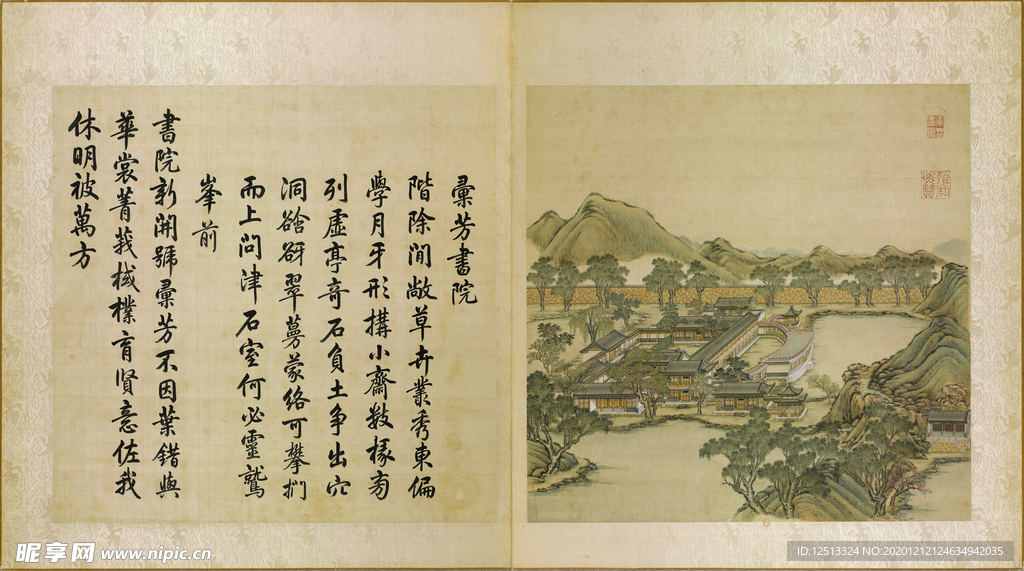 彙芳書院
階除閒敞草卉叢秀東偏
學月牙形搆小齋數椽旁
列虛亭奇石負土爭出穴
洞谽谺翠蔓蒙絡可攀捫
而上問津石室何必靈鷲
峯前
書院新開號彙芳不因葉錯與
華裳菁莪棫樸育賢意佐我
休明被萬方
昵享网 www.nipic.cn
ID:12513324 NO:20201212124634942035